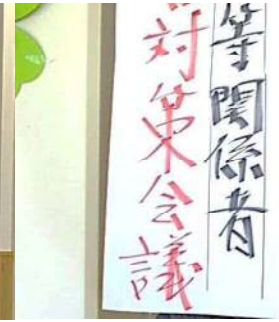 等関係者
対策会議